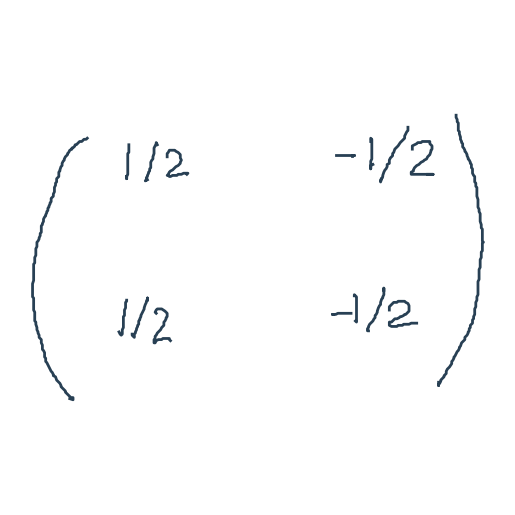 ( 1/2 -1/2 )
1/2 -1/2